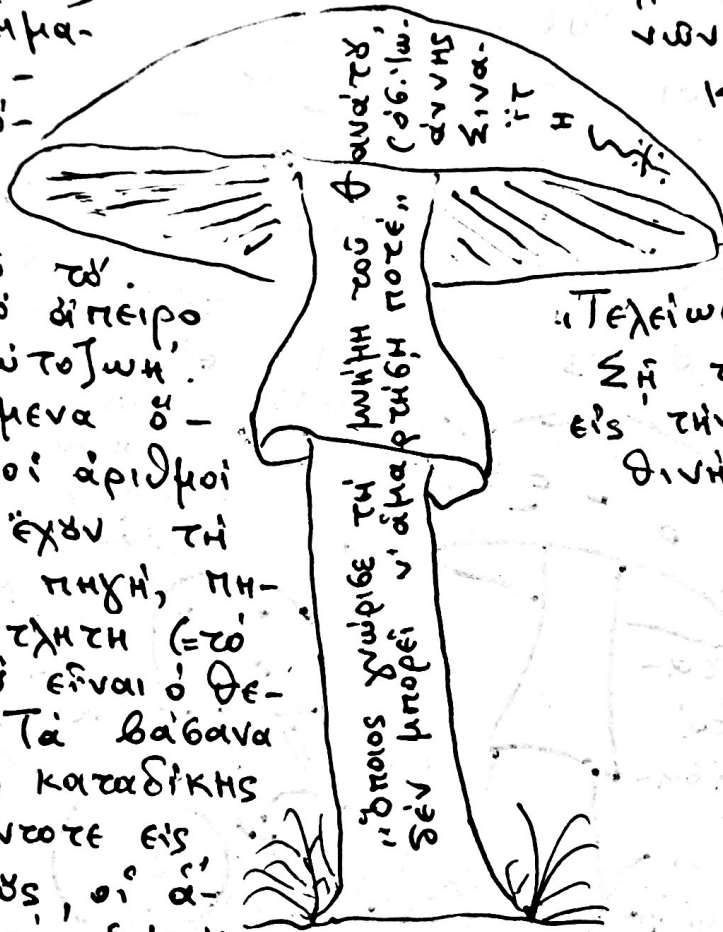 ημα-
-
ό-
τό.
ό ἄπειρο
ὐτοζωή.
μενα ὅ-
οἱ ἀριθμοί
ἔχουν τή
πηγή, πη-
τλητη (=τό
εἶναι ὁ Θε-
Τά βάσανα
καταδίκης
ντοτε εἰς
ούς, οἱ ἀ-
„Ὅποιος γνώρισε τή μνήμη τοῦ θανάτου,
δέν μπορεῖ ν' ἁμαρτήση ποτέ„ (ὁσ. Ἰω-
άννης
Σινα-
ΐτ
η
νῶν
„Τελείω
Σῇ τ
εἰς τήν
θινή